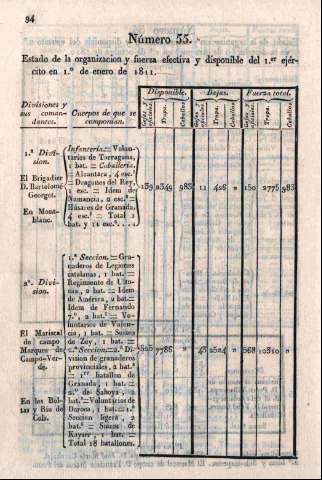 94
Número 55.
Estado de la organizacion y fuerza efectiva y disponible del 1.er ejér-
cito en 1.º de enero de 1811.
Disponible. Bajas. Fuerza total.
Divisiones y
sus coman-
dantes.
Cuerpos de que se
componian.
Gefes y oficiales. Tropa. Caballos. Gefes y oficiales. Tropa. Caballos. Gefes y oficiales. Tropa. Caballos.
1.ª Divi-
sion.
El Brigadier
D. Bartolomé
Georget.
En Mont-
blanc.
Infantería. = Volun-
tarios de Tarragona,
1 bat. = Caballería.
= Alcantara, 4 esc.s
= Dragones del Rey,
1 esc. = Idem de
Numancia, 2 esc.s =
Húsares de Granada,
4 esc.s = Total 1
bat. y 11 esc.s
139 2349 983 11 426 » 150 2775 983
2.ª Divi-
sion.
El Mariscal
de campo
Marques de
Campo-Ver-
de.
1.ª Seccion. = Gra-
naderos de Legiones
catalanas, 1 bat. =
Regimiento de Ulto-
nia, 2 bat. = Idem
de América, 2 bat. =
Idem de Fernando
7.º, 2 bat.s = Vo-
luntarios de Valen-
cia, 1 bat. = Suizos
de Zey, 1 bat. =
2.ª Seccion. = 2.ª Di-
vision de granaderos
provinciales, 2 bat.s
= 1.er batallon de
Granada, 1 bat. =
2.º de Saboya, 2
bat.s = Voluntarios de
Daroca, 1 bat. = 1.ª
Seccion ligera, 2
bat.s = Suizos de
Kayser, 1 bat. =
Total 18 batallones.
7786 » 43 2524 » 568 10310 »